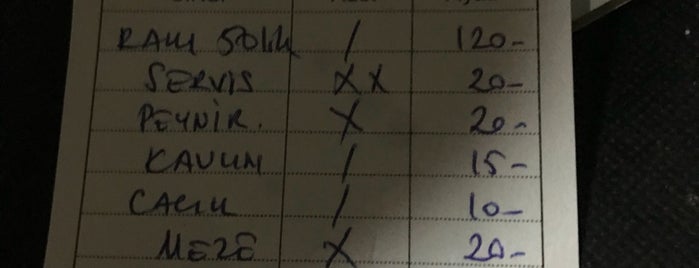 RAKI 50LIK / 120-
SERVİS X X 20-
PEYNİR. X 20-
KAVUN / 15-
CACIK / 10-
MEZE X 20-